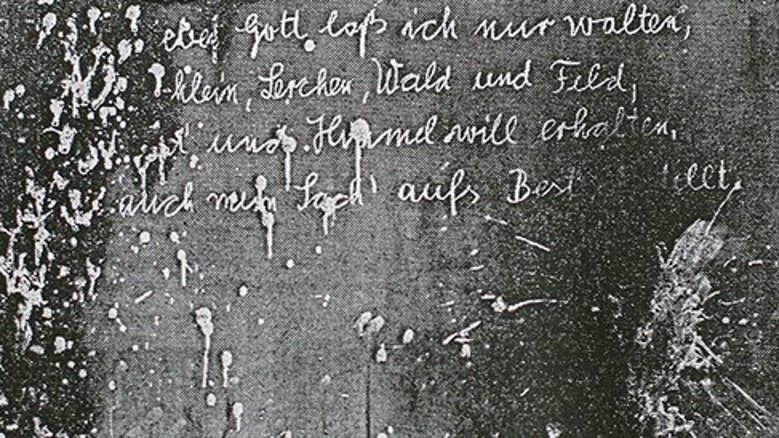 Gott laß ich nur walten,
Lerchen, Wald und Feld,
und Himmel will erhalten,
auch mein Sach' aufs Best